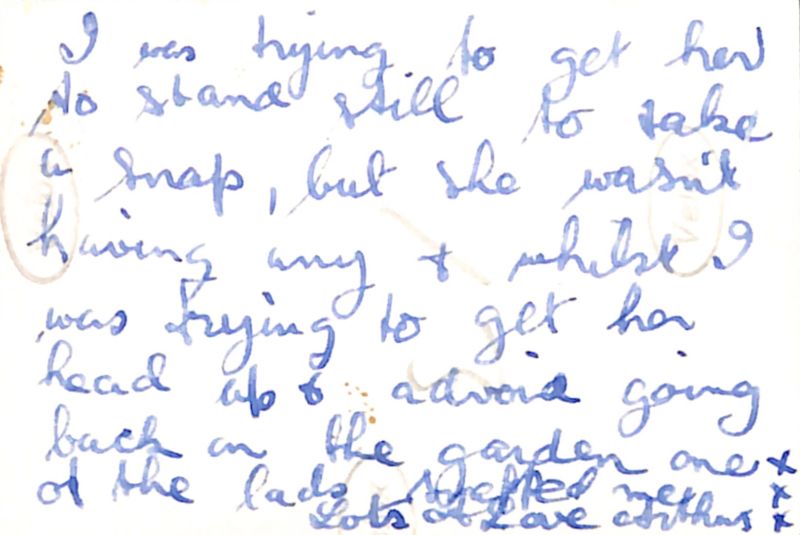 I was trying to get her
to stand still to take
a snap, but she wasn't
having any + whilst I
was trying to get her
head up & advoid going
back on the garden one x
of the lads me x
Lots of Love Arthur x